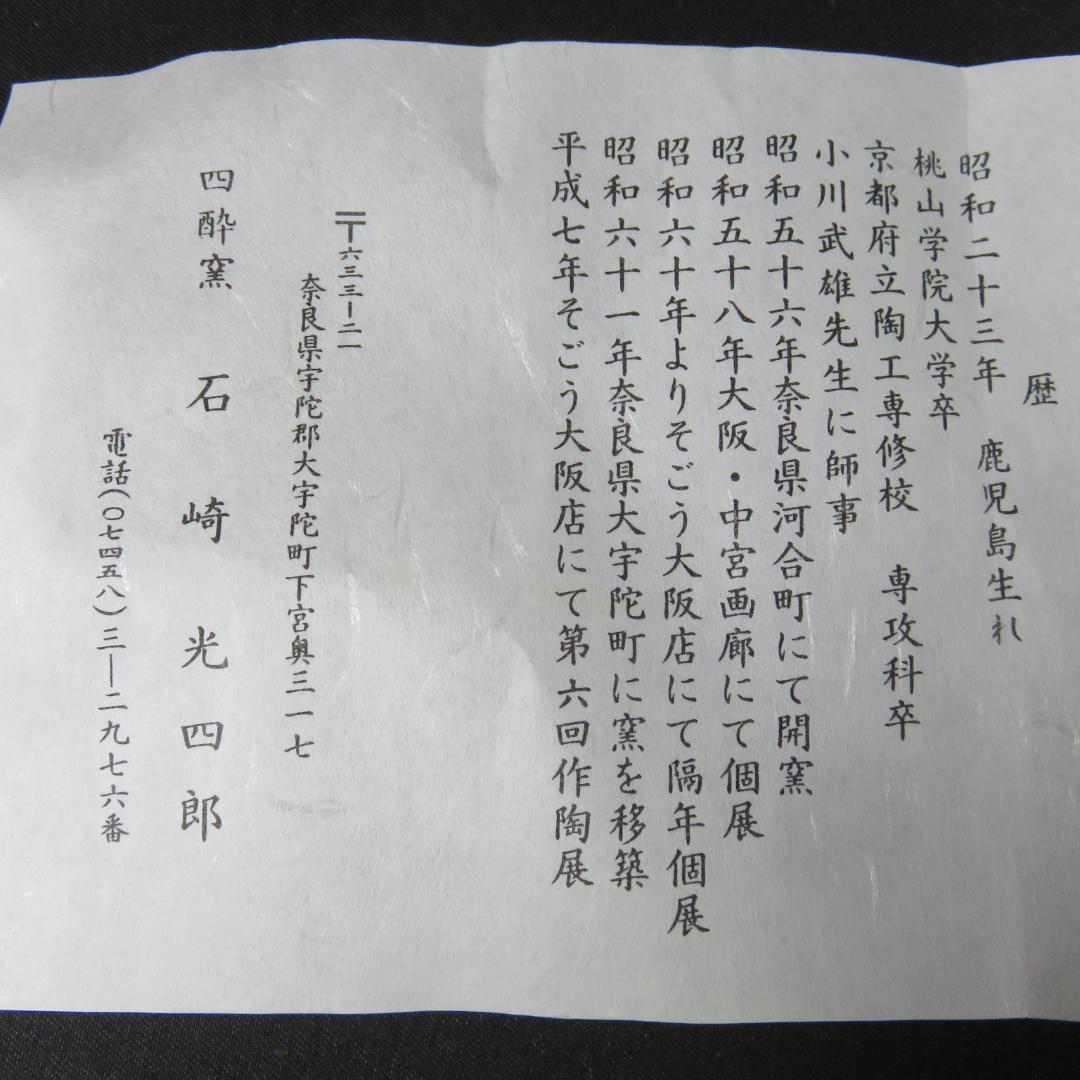 歴
昭和二十三年 鹿児島生れ
桃山学院大学卒
京都府立陶工専修校 専攻科卒
小川武雄先生に師事
昭和五十六年奈良県河合町にて開窯
昭和五十八年大阪・中宮画廊にて個展
昭和六十年よりそごう大阪店にて隔年個展
昭和六十一年奈良県大宇陀町に窯を移築
平成七年そごう大阪店にて第六回作陶展
〒六三三ー二一
奈良県宇陀郡大宇陀町下宮奥三一七
四酔窯 石崎光四郎
電話(〇七四五八)三―二九七六番